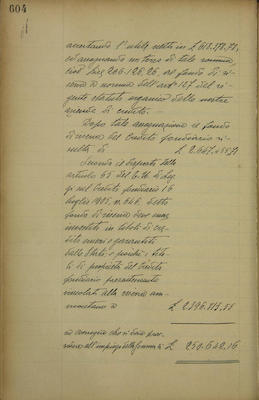 604
accertando l'utile netto in £ 618.378,78,
ed assegnando un terzo di tale somma,
cioè Lire 206.126,26 al fondo di ri-
serva a norma dell'art° 107 del vi-
gente statuto organico della nostra
azienda di credito. —
Dopo tale assegnazione il fondo
di riserva del Credito fondiario ri-
sulta di £ 2.647.
Secondo il disposto dello
articolo 65 del T. U. di Leg-
gi sul Credito fondiario 16
luglio 1905, n. 646, detto
fondo di riserva deve essere
investito in titoli di cre-
dito emessi o garantiti
dallo Stato; e poichè i tito-
li di proprietà del Credito
fondiario precedentemente
vincolati alla riserva am-
montano a £ 2.396.
ne consegue che si deve prov-
vedere all'impiego della somma di £ 250.642,16